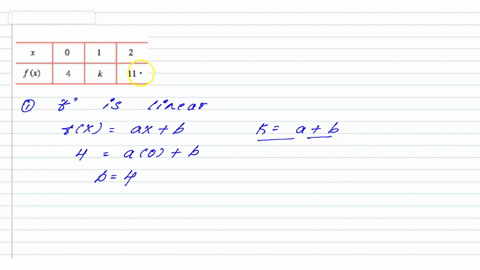 x 0 1 2
f(x) 4 k 11
① f is linear
f(x) = ax + b k = a + b
4 = a(0) + b
b = 4